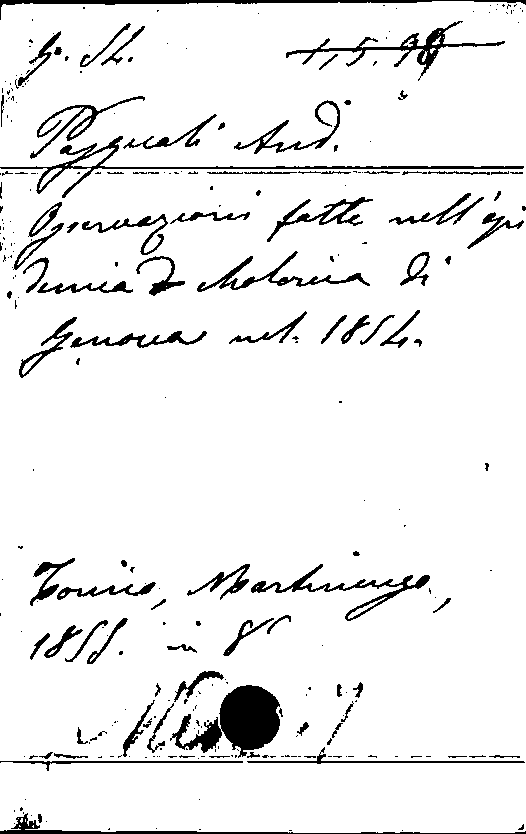 Pasquali And.
Osservazioni fatte nell'epi
demia di Cholorica di
Genova nel 1854.
Torino, Martinengo,
1855. in 8°